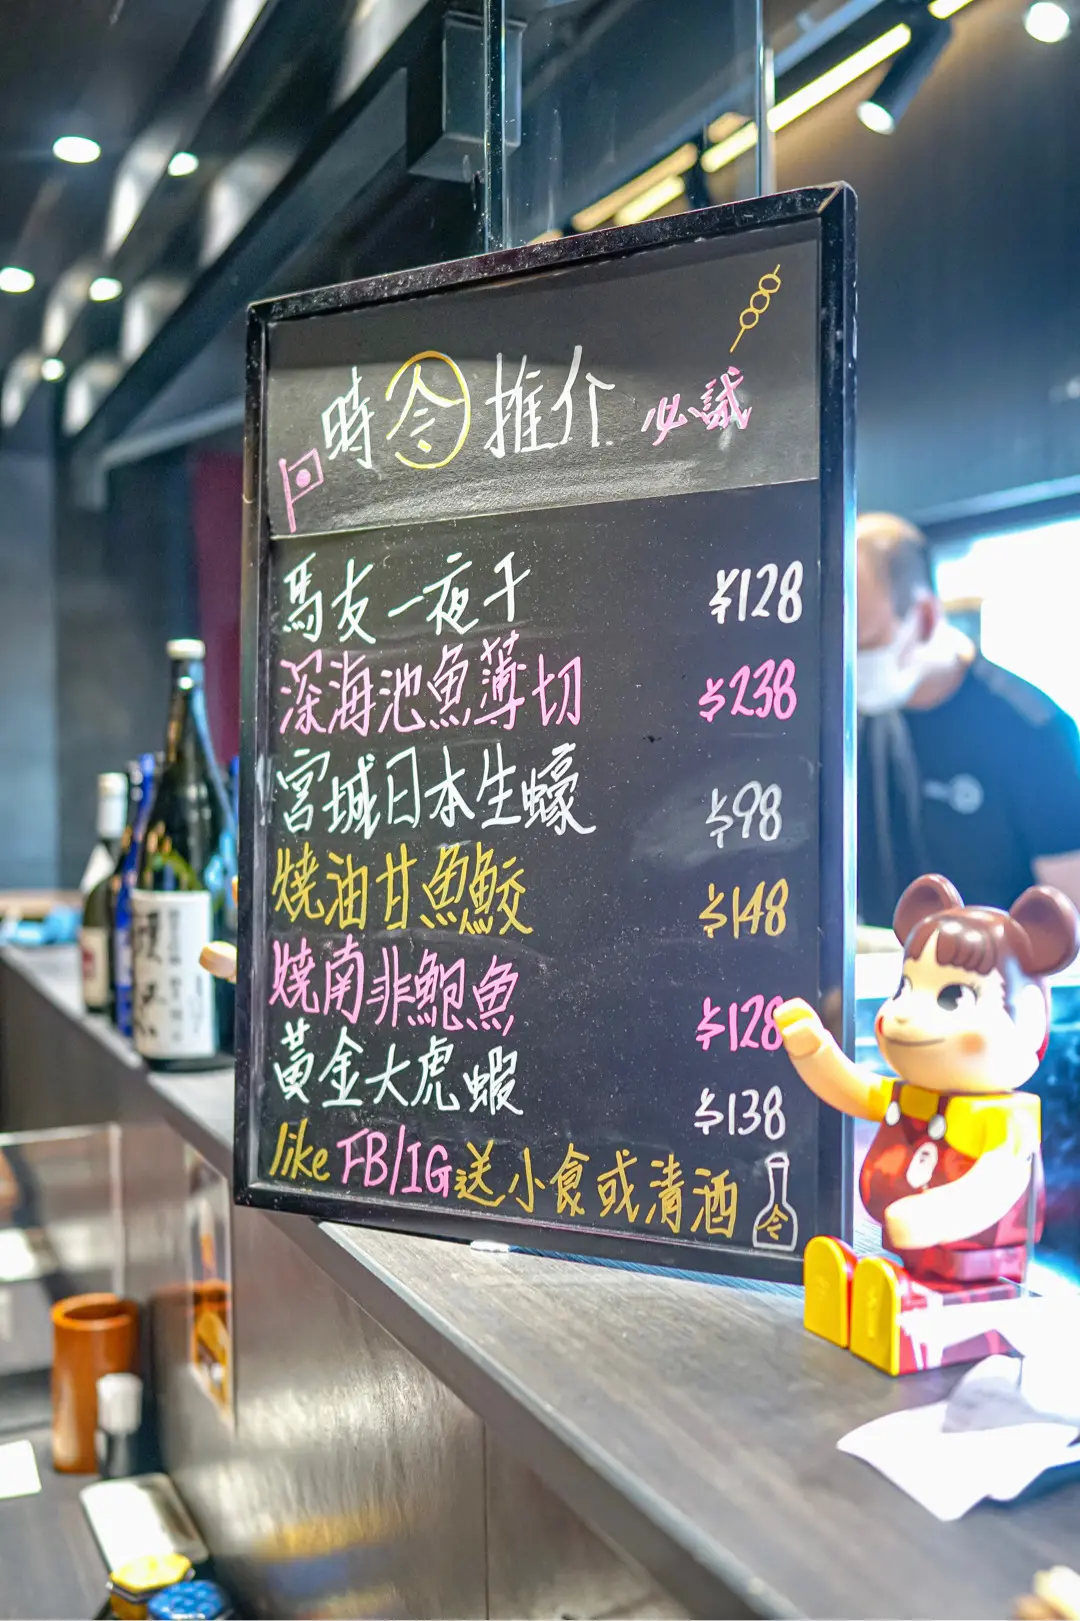 時令推介 必試
馬友一夜干 $128
深海池魚薄切 $238
宮城日本生蠔 $98
燒油甘魚鮫 $148
燒南非鮑魚 $128
黃金大虎蝦 $138
like FB/IG送小食或清酒
令